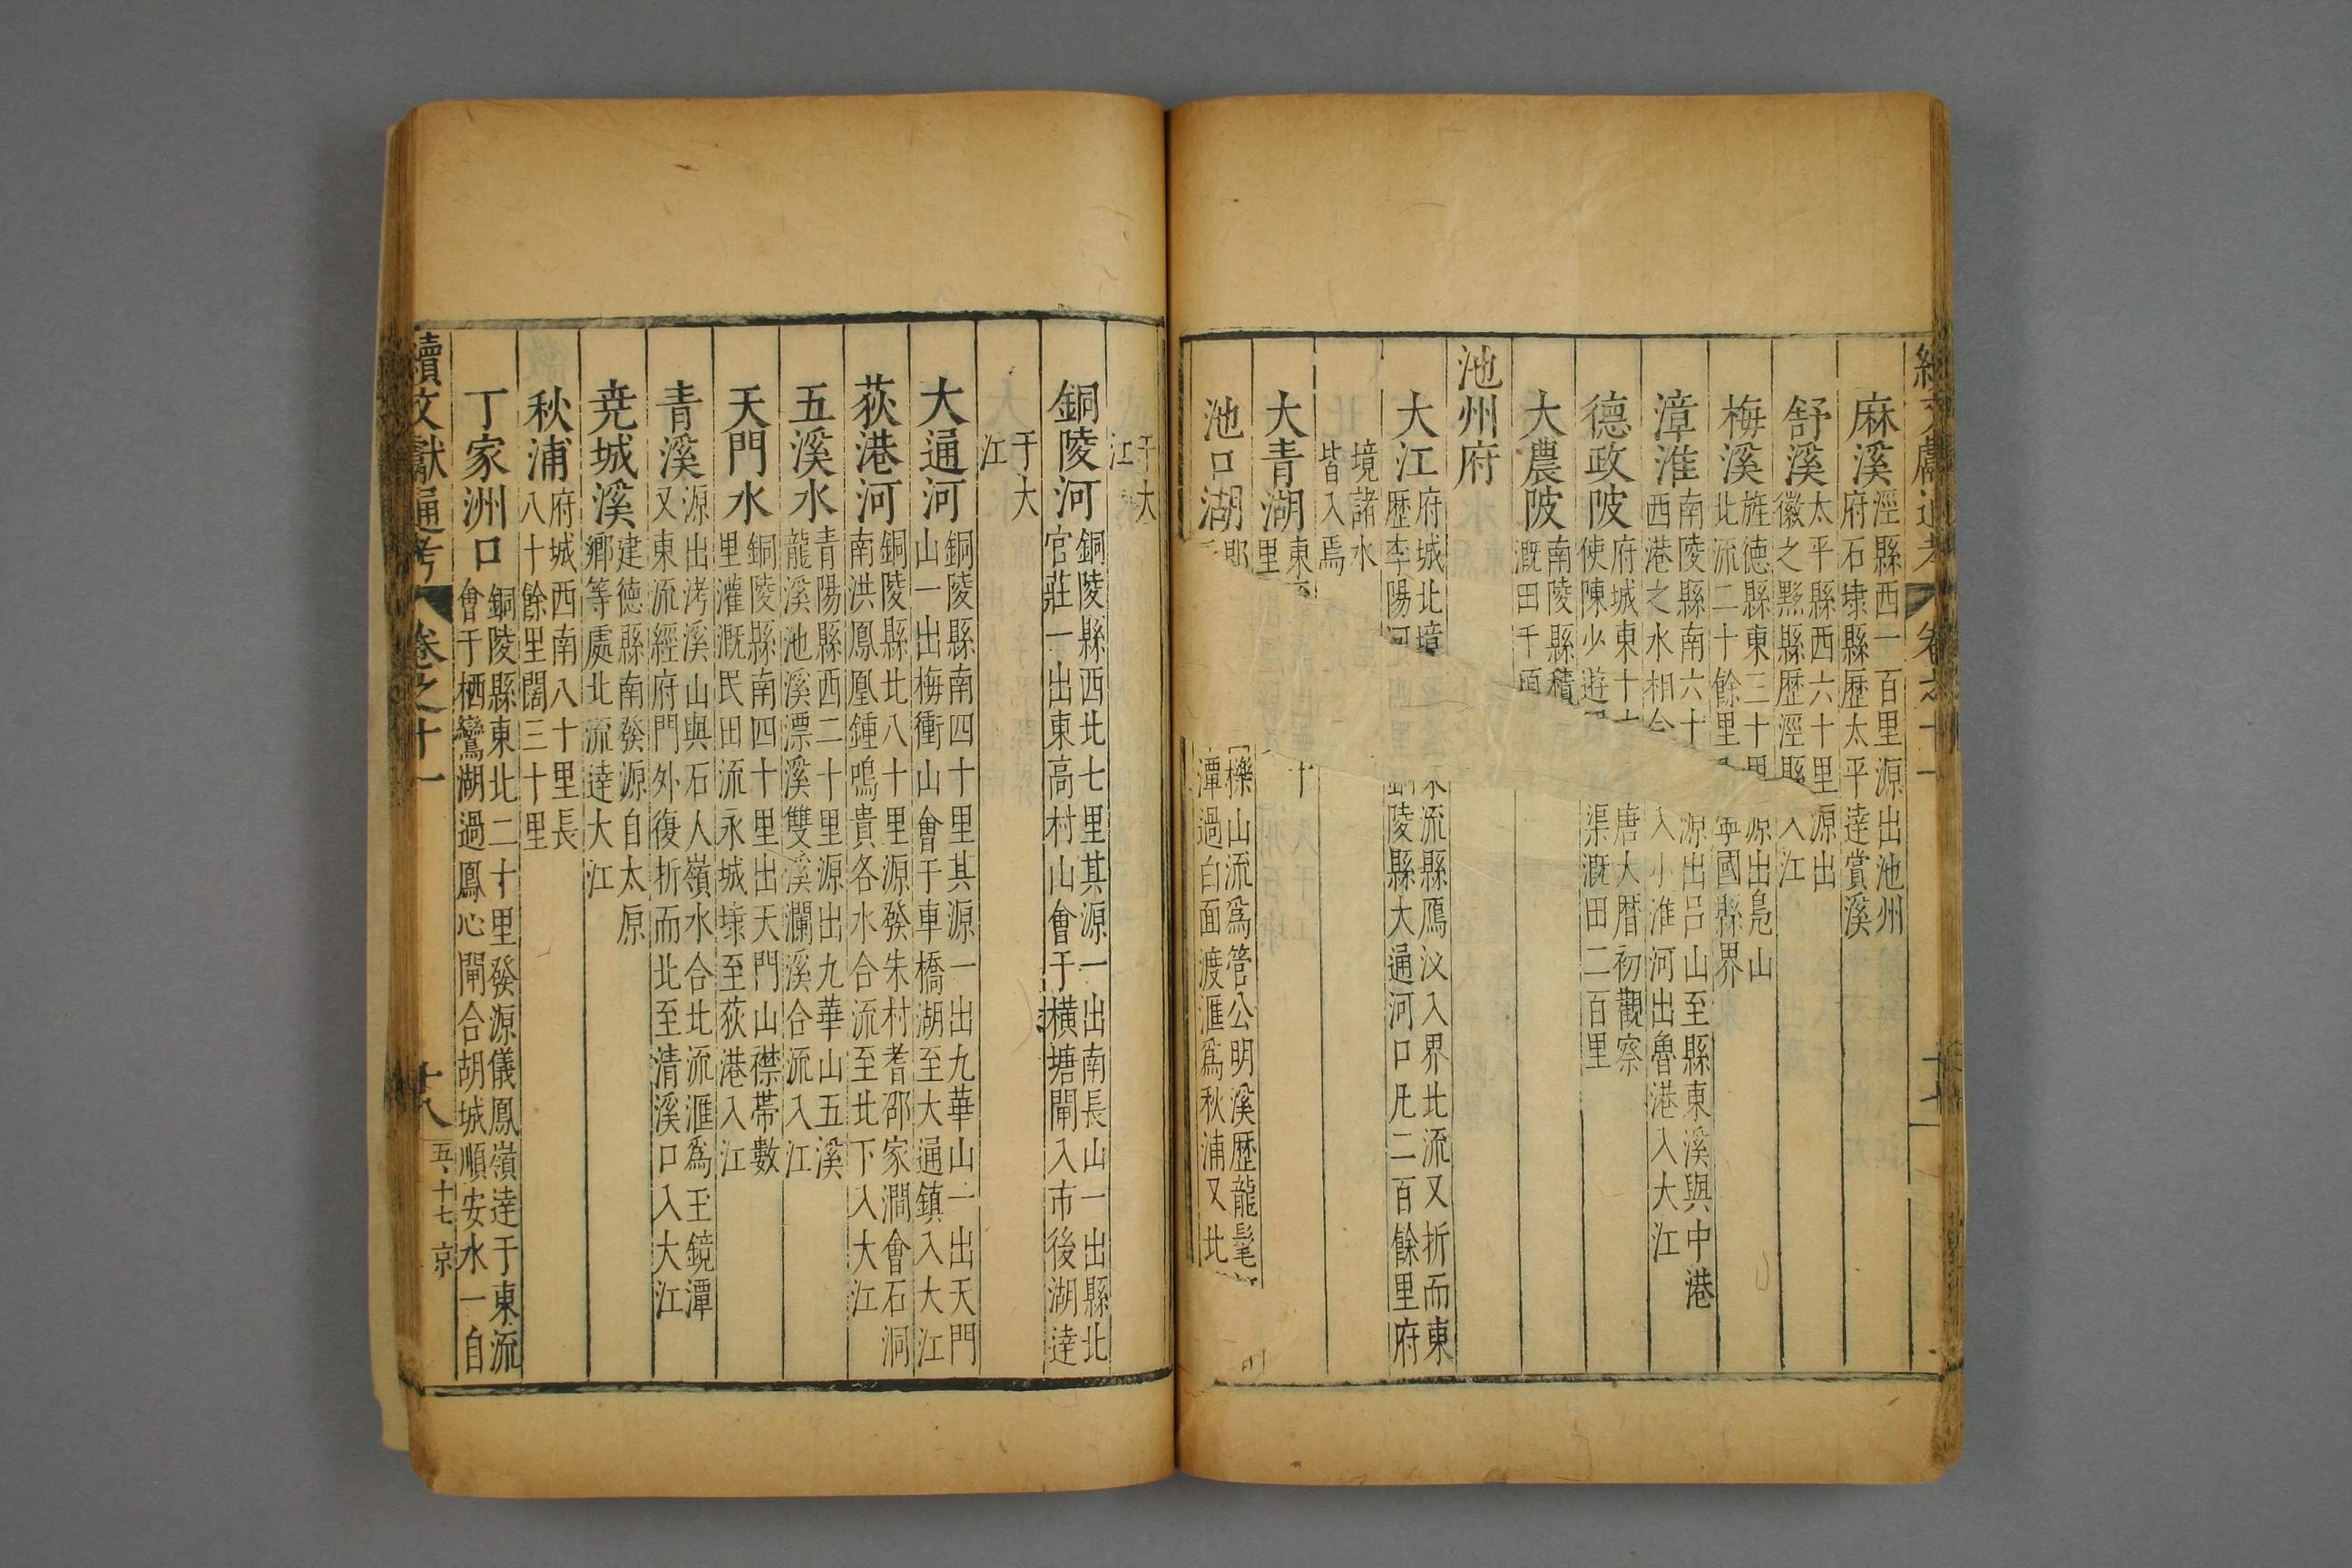 麻溪涇縣西一百里源出池州
府石埭縣歷太平達賞溪
舒溪太平縣西六十里源出
徽之黟縣歷涇縣入江
梅溪旌德縣東三十里源出鳧山
北流二十餘里寧國縣界
漳淮南陵縣南六十 源出呂山至縣東溪與中港
西港之水相合入小淮河出魯港入大江
德政陂府城東十 唐大曆初觀察
使陳少遊 渠溉田二百里
大農陂南陵縣積
溉田千
池州府
大江府城北境 東流縣鴈汊入界北流又折而東
歷李陽河 銅陵縣大通河口凡二百餘里府
境諸水
皆入焉
大青湖東 十
里
池口湖郡 櫟山流爲管公明溪歷龍髦
潭過白面渡滙爲秋浦又北
于大
江
銅陵河銅陵縣西北七里其源一出南長山一出縣北
官莊一出東高村山會于橫塘閘入市後湖達
于大
江
大通河銅陵縣南四十里其源一出九華山一出天門
山一出梅衝山會于車橋湖至大通鎮入大江
荻港河銅陵縣北八十里源發朱村耆邵家澗會石洞
南洪鳳凰鍾鳴貴各水合流至北下入大江
五溪水青陽縣西二十里源出九華山五溪
龍溪池溪漂溪雙溪瀾溪合流入江
天門水銅陵縣南四十里出天門山襟帶數
里灌溉民田流永城埭至荻港入江
青溪源出洘溪山與石人嶺水合北流滙爲王鏡潭
又東流經府門外復折而北至清溪口入大江
尭城溪建德縣南發源自太原
鄉等處北流達大江
秋浦府城西南八十里長
八十餘里闊三十里
丁家洲口銅陵縣東北二十里發源儀鳳嶺達于東流
會于栖鸞湖過鳳心閘合胡城順安水一自
續文獻通考 卷之十一 十八 五十七 京